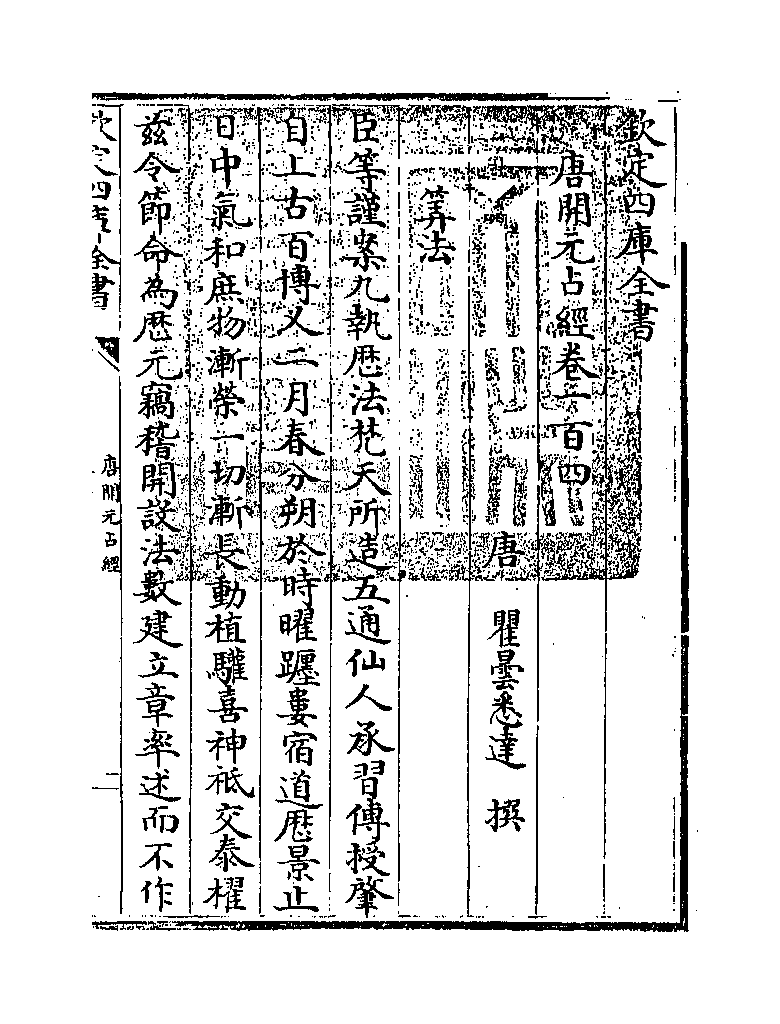 欽定四庫全書
唐開元占經卷一百四
唐 瞿曇悉達 撰
筭法
臣等謹案九執厯法梵天所造五通仙人承習傳授肇
自上古百博乂二月春分朔於時曜躔婁宿道厯景止
日中氣和庶物漸榮一切漸長動植驩喜神祗交泰櫂
兹令節命為厯元竊稽開設法數建立章率述而不作
欽定四庫全書
唐開元占經